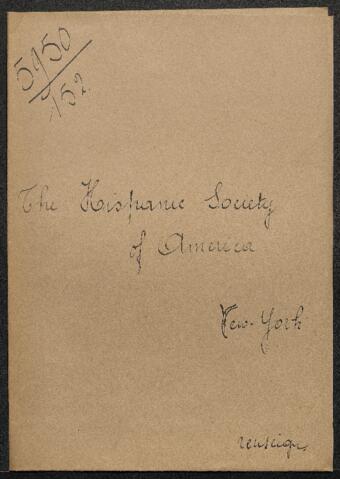 5950
152
The Hispanic Society
of America
New-York
renseign